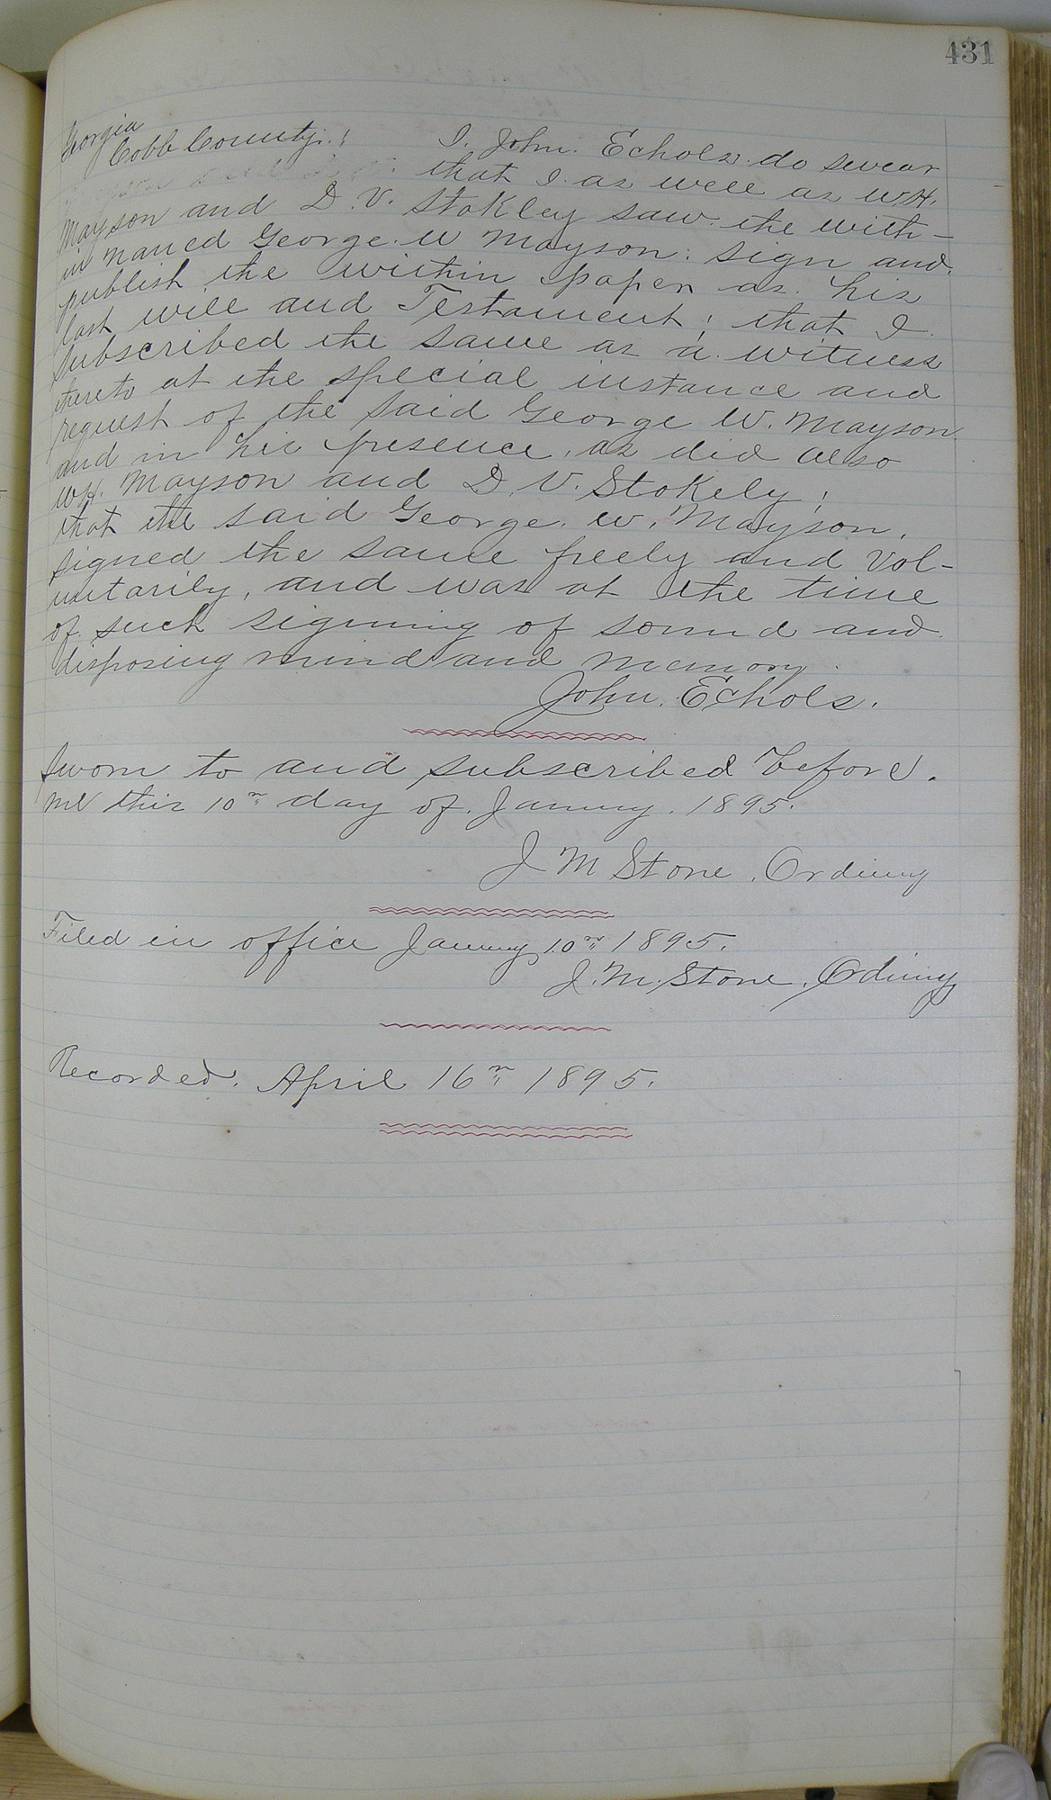 431
Georgia
Cobb County. ! I. John. Echols. do swear
that I as well as W.H.
Mayson and D. V. Stokley saw the with-
in named George. W Mayson: sign and.
publish the within paper as his
last will and Testament; that I.
subscribed the same as a witness
thereto at the special instance and
request of the said George W. Mayson
and in his presence, as did also
W.H. Mayson and D. V. Stokely;
that the said George. W. Mayson.
signed the same freely and Vol-
untarily, and was at the time
of such signing of sound and
disposing mind and memory.
John. Echols.
Sworn to and subscribed before.
me this 10th day of January. 1895.
J M Stone. Ordinary
Filed in office January 10th 1895.
J. M. Stone. Ordinary
Recorded. April 16th 1895.